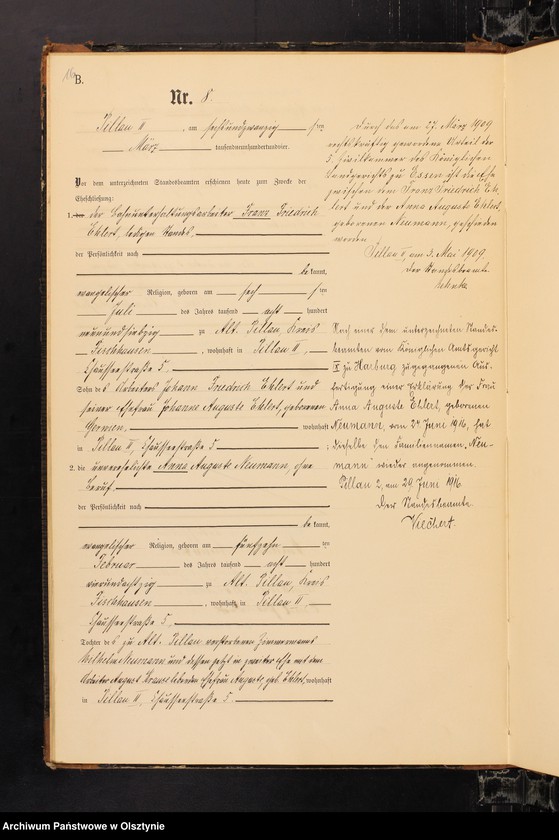 B.
Nr. 8.
Pillau II, am sechsundzwanzig ten
März tausendneunhundertundvier.
Vor dem unterzeichneten Standesbeamten erschienen heute zum Zwecke der
Eheschließung:
1. der Franz Friedrich
Ehlert, ledigen Standes,
der Persönlichkeit nach
be kannt,
evangelischer Religion, geboren am sech s ten
Juli des Jahres tausend acht hundert
neunundsiebzig zu Alt. Pillau, Kreis
Fischhausen, wohnhaft in Pillau II,
Chausseestraße 5.
Sohn des Arbeiters Johann Friedrich Ehlert und
seiner Ehefrau Johanne Auguste Ehlert, geborenen
wohnhaft
in Pillau II, Chausseestraße 5
2. die unverehelichte Anna Auguste Neumann, ohne
Beruf
der Persönlichkeit nach
be kannt,
evangelischer Religion, geboren am fünfzehn ten
Februar des Jahres tausend acht hundert
vierundachtzig zu Alt. Pillau, Kreis
Fischhausen, wohnhaft in Pillau II,
Chausseestraße 5,
Tochter des zu Alt. Pillau verstorbenen Zimmermanns
Wilhelm Neumann und dessen jetzt in zweiter Ehe mit dem
Arbeiter August Krause lebenden Ehefrau Auguste, geb. Ehlert, wohnhaft
in Pillau II, Chausseestraße 5.
Durch das am 27. März 1909
rechtskräftig gewordene Urteil der
5. Zivilkammer des Königlichen
Landgerichts zu Essen ist die Ehe
zwischen dem Franz Friedrich Eh-
lert und der Anna Auguste Ehlert,
geborenen Neumann, geschieden
worden.
Pillau II, am 3. Mai 1909.
Der Standesbeamte.
Nach einer dem unterzeichneten Standes-
beamten vom Königlichen Amtsgericht
IX zu Harburg zugegangenen Aus-
fertigung einer Erklärung der Frau
Anna Auguste Ehlert, geborenen
Neumann, vom 2. Juni 1916, hat
dieselbe den Familiennamen Neu-
mann wieder angenommen.
Pillau 2, am 29. Juni 1916
Der Standesbeamte.
Archiwum Państwowe w Olsztynie